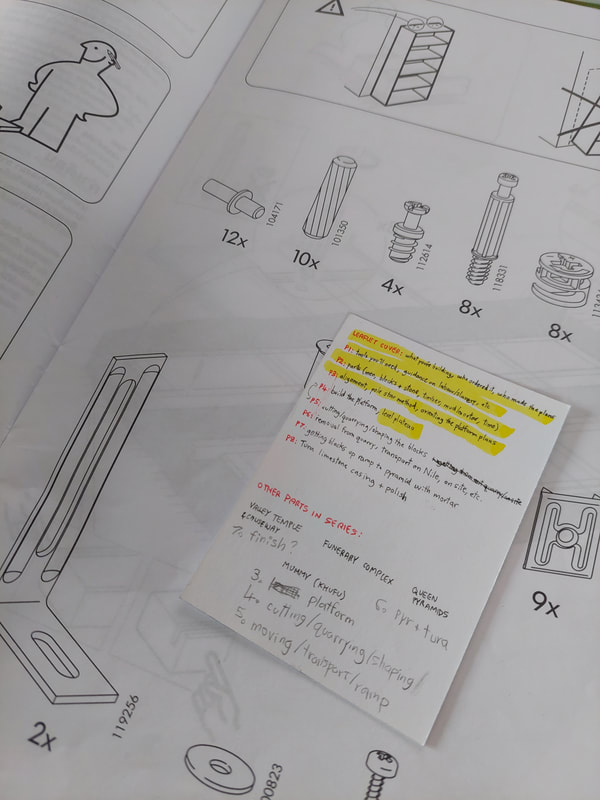 12x
104171
10x
101350
4x
112614
8x
118331
8x
LEAFLET COVER: what you're building, who ordered it, who made the plans
P1: tools you'll need, guidance on labour/slaves, etc.
P2: parts (men, blocks + stone, timber, mud/mortar, time)
P3: alignment, pole star method, orienting the platform plans
P4: build the platform, level plateau
P5: cutting/quarrying/shaping the blocks
P6: removal from quarry, transport on Nile, on site, etc.
P7: getting blocks up ramp to pyramid with mortar
P8: Tura limestone casing + polish
OTHER PARTS IN SERIES:
VALLEY TEMPLE
+ CAUSEWAY
FUNERARY COMPLEX
QUEEN
PYRAMIDS
MUMMY (KHUFU)
7. finish?
3. platform
6. pyr + tura
4. cutting/quarrying/shaping/
5. moving/transport/ramp
9x
2x
119256
00823